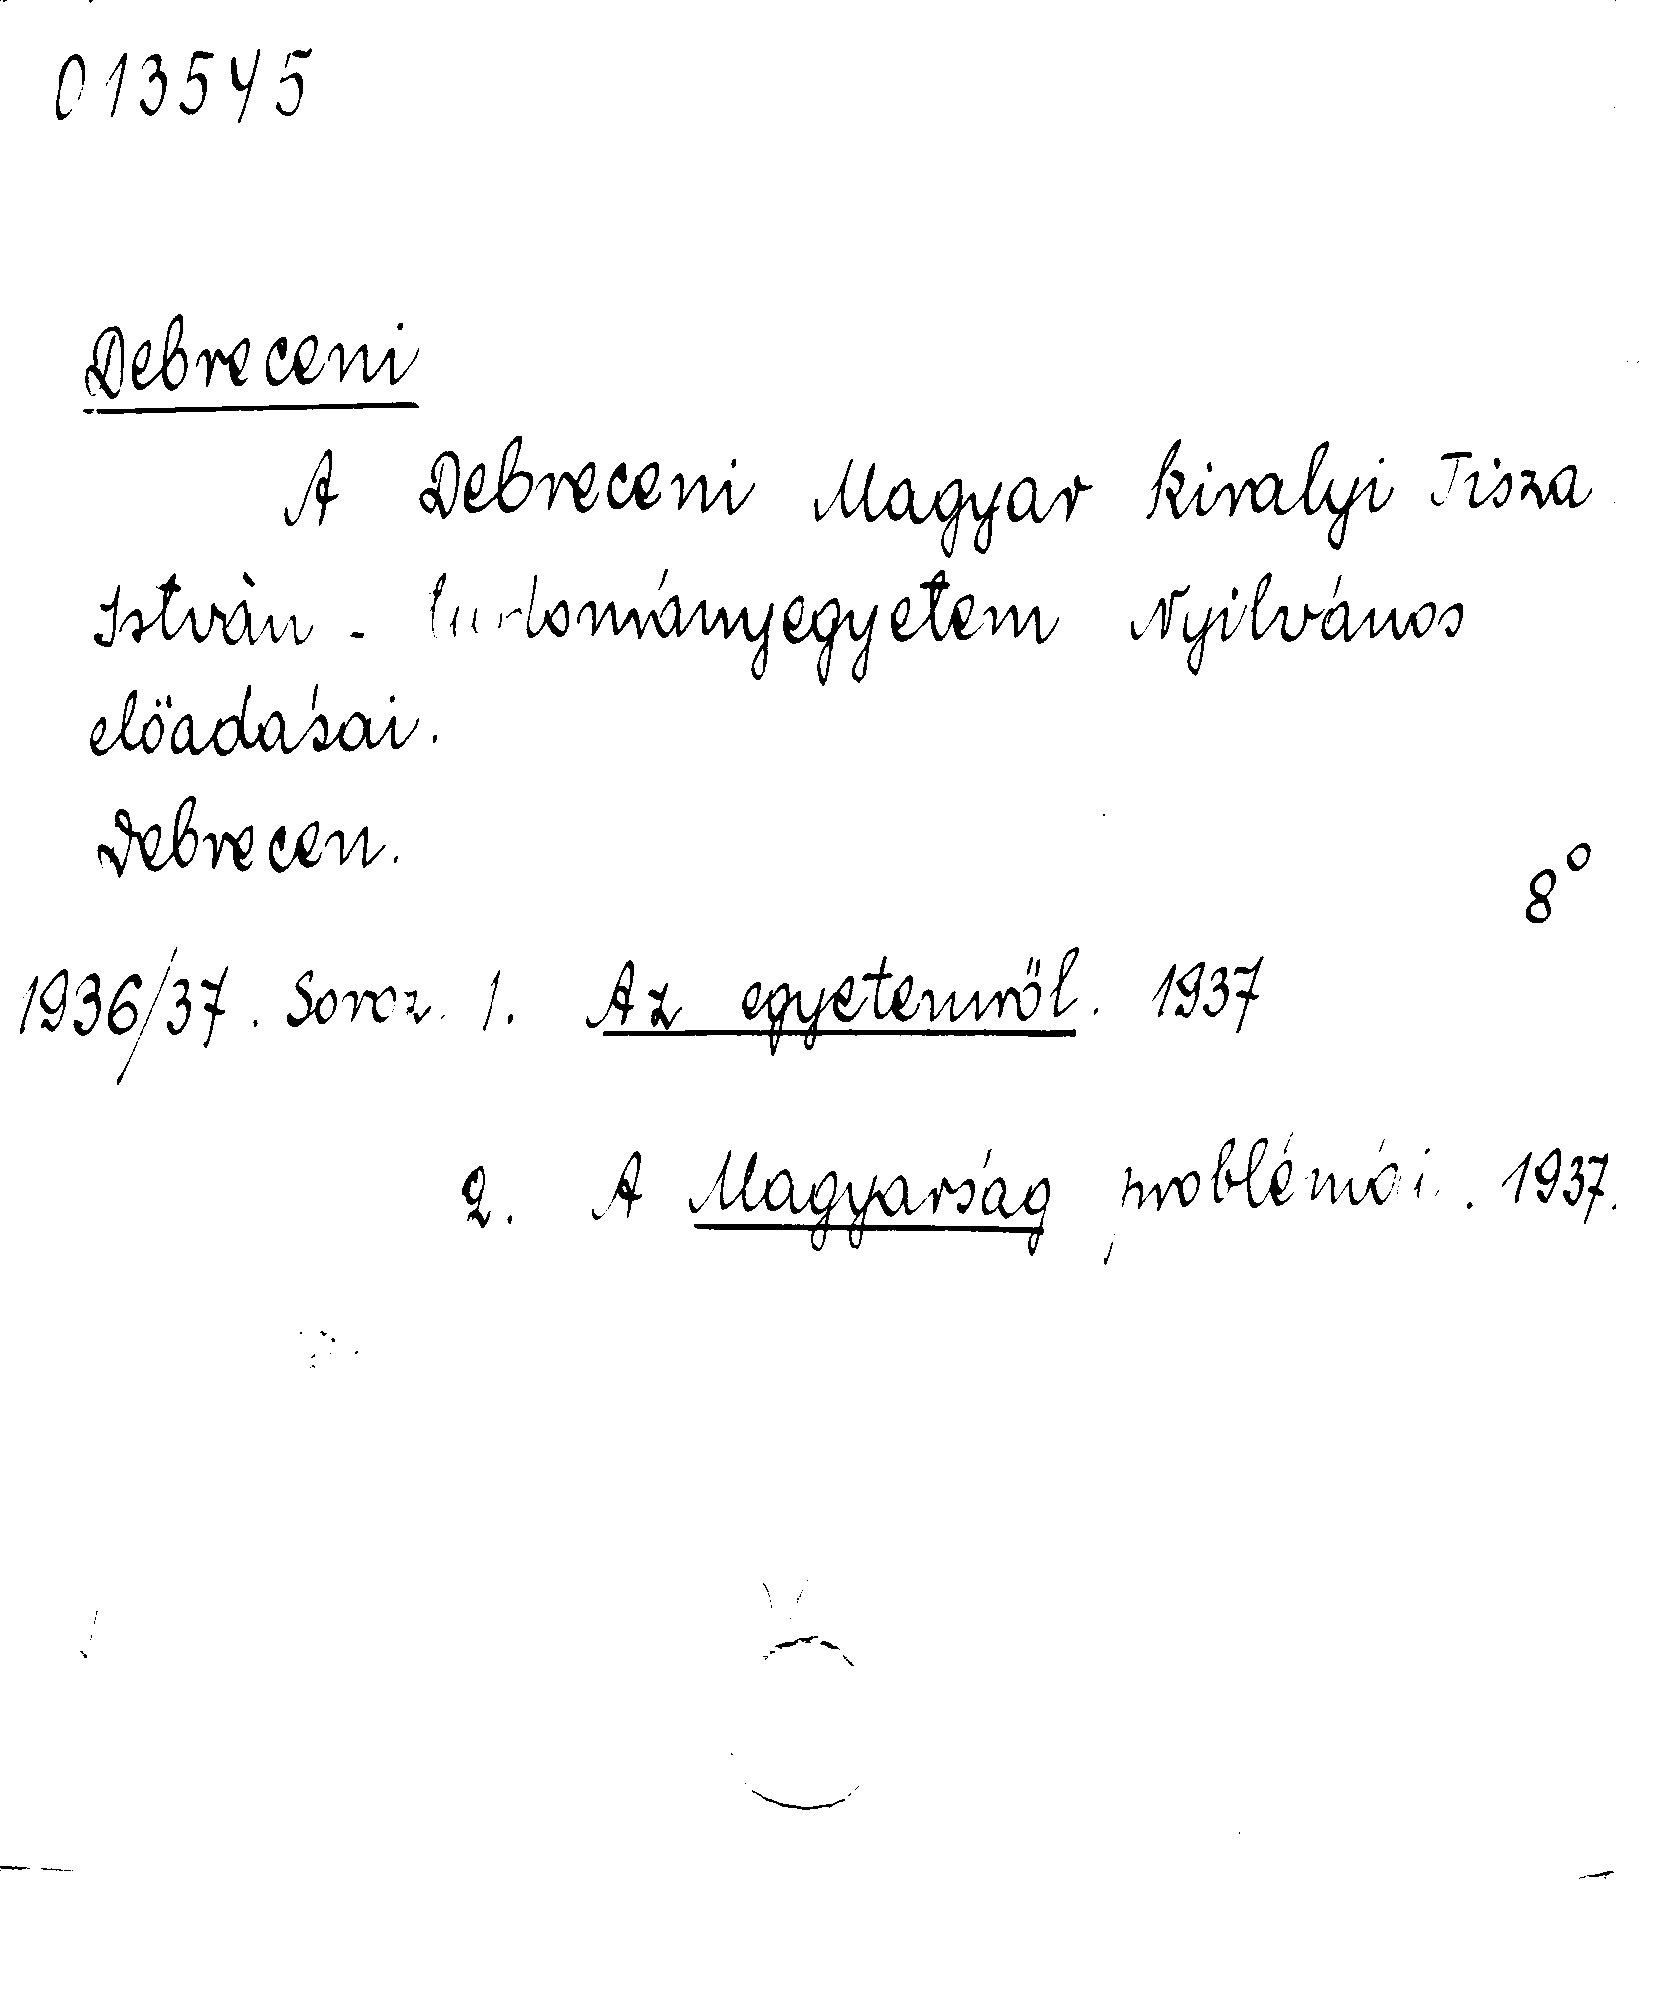 013545
Debreceni
A Debreceni Magyar kiralyi Tisza
István - tudományegyetem Nyilvános
elöadásai.
Debrecen.
8°
1936/37. Soroz. 1. Az egyetemröl. 1937
2. A Magyarság problémái. 1937.